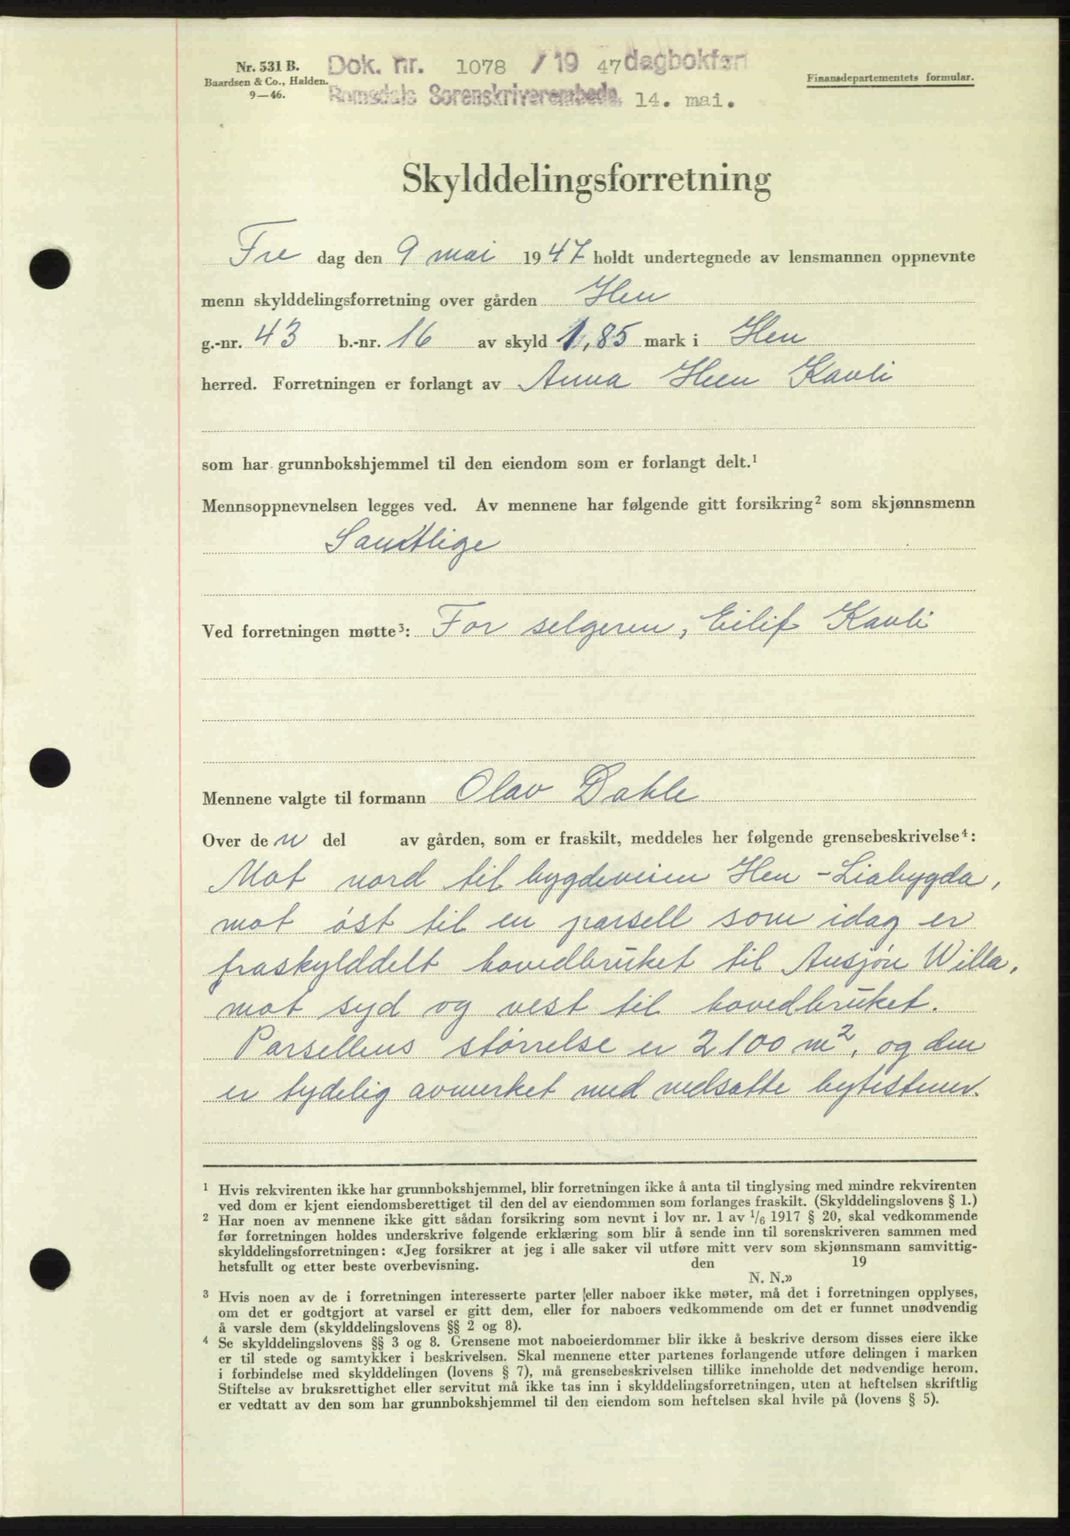 Nr. 531 B.
Baardsen & Co., Halden.
9—46.
Dok. nr. 1078 /19 47 dagbokført
Romsdals Sorenskriverembede. 14. mai.
Finansdepartementets formular.
Skylddelingsforretning
Fre dag den 9 mai 1947 holdt undertegnede av lensmannen oppnevnte
menn skylddelingsforretning over gården Hen
g.-nr. 43 b.-nr. 16 av skyld 1,85 mark i Hen
herred. Forretningen er forlangt av Anna Hen Kavli
som har grunnbokshjemmel til den eiendom som er forlangt delt.¹
Mennsoppnevnelsen legges ved. Av mennene har følgende gitt forsikring² som skjønnsmenn
Samtlige
Ved forretningen møtte³: For selgeren, Eilif Kavli
Mennene valgte til formann Olav Dahle
Over de n del av gården, som er fraskilt, meddeles her følgende grensebeskrivelse⁴:
Mot nord til bygdeveien Hen - Liabygda,
mot øst til en parsell som idag er
fraskylddelt hovedbruket til Ansjøn Willa,
mot syd og vest til hovedbruket.
Parsellens størrelse er 2100 m², og den
er tydelig avmerket med nedsatte bytestener.
¹ Hvis rekvirenten ikke har grunnbokshjemmel, blir forretningen ikke å anta til tinglysing med mindre rekvirenten
ved dom er kjent eiendomsberettiget til den del av eiendommen som forlanges fraskilt. (Skylddelingslovens § 1.)
² Har noen av mennene ikke gitt sådan forsikring som nevnt i lov nr. 1 av 1/6 1917 § 20, skal vedkommende
før forretningen holdes underskrive følgende erklæring som blir å sende inn til sorenskriveren sammen med
skylddelingsforretningen: «Jeg forsikrer at jeg i alle saker vil utføre mitt verv som skjønnsmann samvittig-
hetsfullt og etter beste overbevisning. den 19
N. N.»
³ Hvis noen av de i forretningen interesserte parter eller naboer ikke møter, må det i forretningen opplyses,
om det er godtgjort at varsel er gitt dem, eller for naboers vedkommende om det er funnet unødvendig
å varsle dem (skylddelingslovens §§ 2 og 8).
⁴ Se skylddelingslovens §§ 3 og 8. Grensene mot naboeierdommer blir ikke å beskrive dersom disses eiere ikke
er til stede og samtykker i beskrivelsen. Skal mennene etter partenes forlangende utføre delingen i marken
i forbindelse med skylddelingen (lovens § 7), må grensebeskrivelsen tillike inneholde det nødvendige herom.
Stiftelse av bruksrettighet eller servitut må ikke tas inn i skylddelingsforretningen, uten at heftelsen skriftlig
er vedtatt av den som har grunnbokshjemmel til den eiendom som heftelsen skal hvile på (lovens § 5).